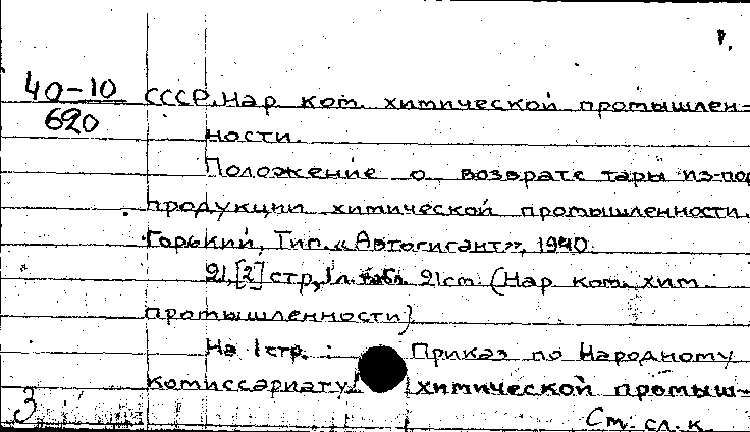 40-10
620
СССР. Нар. ком. химической промышлен-
ности.
Положение о возврате тары из-под
продукции химической промышленности.
Горький, Тип. «Автогигант», 1940.
21,[2] стр., 1 л. табл. 21 см. (Нар. ком. хим.
промышленности)
На 1 стр.: Приказ по Народному
комиссариату химической промыш-
См. сл. к.
3